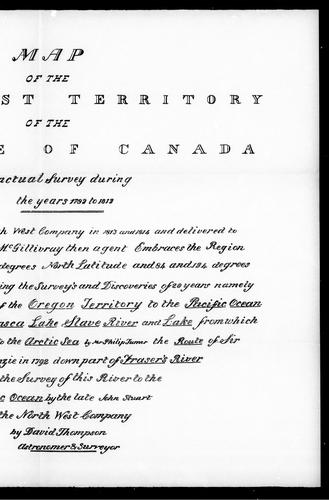 MAP
OF THE
ST TERRITORY
OF THE
E OF CANADA
actual Survey during
the years 1792 to 1812
h West Company in 1813 and 1814 and delivered to
McGillivray then agent Embraces the Region
degrees North Latitude and 84 and 124 degrees
ing the Survey's and Discoveries of 20 years namely
f the Oregon Territory to the Pacific Ocean
asca Lake, Slave River and Lake from which
to the Arctic Sea by Mr Philip Turner the Route of Sir
nzie in 1792 down part of Fraser's River
the Survey of this River to the
c Ocean by the late John Stuart
the North West Company
by David Thompson
Astronomer & Surveyor